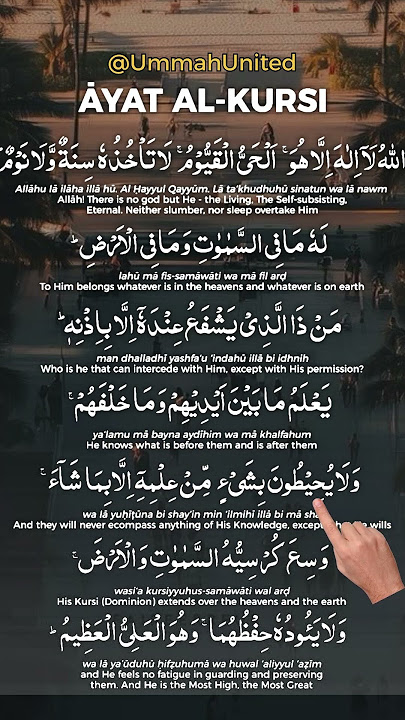 @UmmahUnited
ĀYAT AL-KURSI
اللهُ لَآ اِلٰهَ اِلَّا هُوَ ۚ اَلْحَيُّ الْقَيُّوْمُ ۚ لَا تَاْخُذُهٗ سِنَةٌ وَّلَا نَوْمٌ
Allāhu lā ilāha illā hū. Al Ḥayyul Qayyūm. Lā ta’khudhuhū sinatun wa lā nawm
Allāh! There is no god but He - the Living, The Self-subsisting,
Eternal. Neither slumber, nor sleep overtake Him
لَهٗ مَا فِى السَّمٰوٰتِ وَمَا فِى الْاَرْضِ ؕ
lahū mā fis-samāwāti wa mā fil arḍ
To Him belongs whatever is in the heavens and whatever is on earth
مَنْ ذَا الَّذِىْ يَشْفَعُ عِنْدَهٗٓ اِلَّا بِاِذْنِهٖ ؕ
man dhalladhi yashfa’u ‘indahū illā bi idhnih
Who is he that can intercede with Him, except with His permission?
يَعْلَمُ مَا بَيْنَ اَيْدِيْهِمْ وَمَا خَلْفَهُمْ ۚ
ya’lamu mā bayna aydīhim wa mā khalfahum
He knows what is before them and is after them
وَلَا يُحِيْطُوْنَ بِشَىْءٍ مِّنْ عِلْمِهٖٓ اِلَّا بِمَا شَآءَ ۚ
wa lā yuḥīṭūna bi shay’in min ‘ilmihī illā bi mā
And they will never ecompass anything of His Knowledge, except wills
وَسِعَ كُرْسِيُّهُ السَّمٰوٰتِ وَالْاَرْضَ ۚ
wasi’a kursiyyuhus-samāwāti wal arḍ
His Kursi (Dominion) extends over the heavens and the earth
وَلَا يَـُٔوْدُهٗ حِفْظُهُمَا ۚ وَهُوَ الْعَلِىُّ الْعَظِيْمُ ؕ
wa lā ya’ūduhū ḥifẓuhumā wa huwal ‘aliyyul ‘aẓīm
and He feels no fatigue in guarding and preserving
them. And He is the Most High, the Most Great